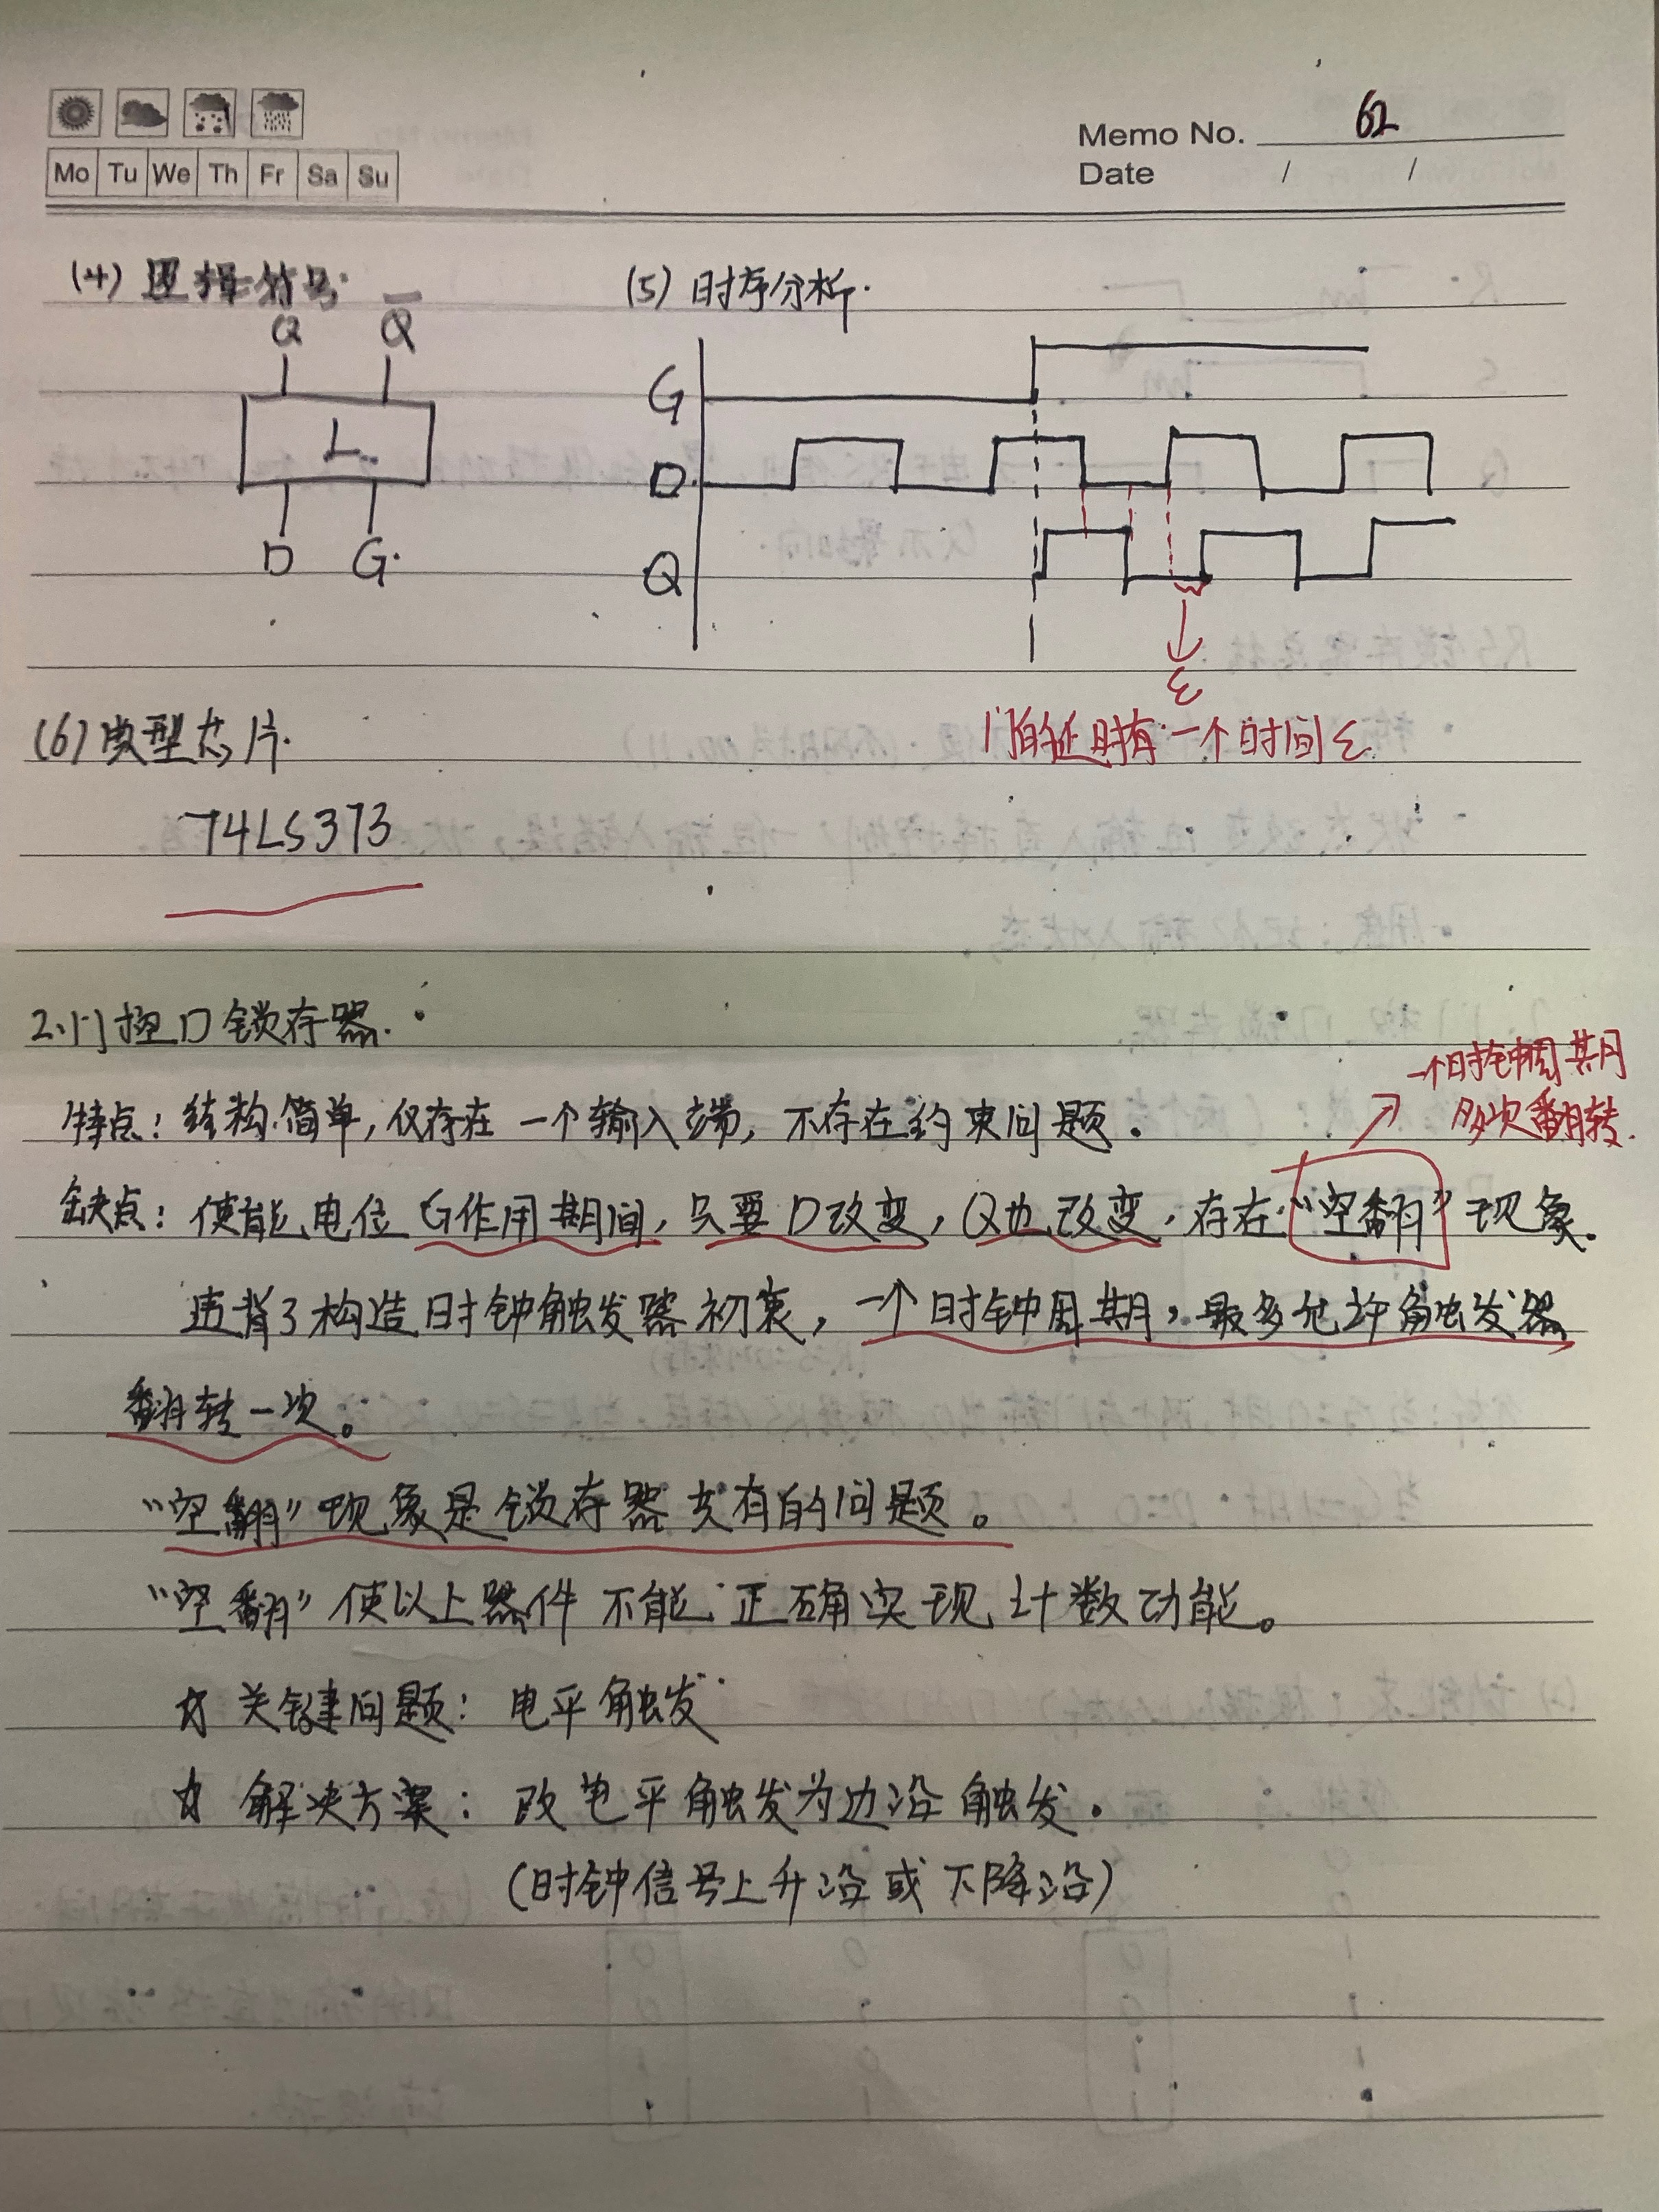 Memo No. 62
Mo Tu We Th Fr Sa Su
Date / /
(4) 逻辑符号. (5) 时序分析.
Q Q̅
L
D G
G
D
Q
ε
门的延时有一个时间ε
(6) 典型芯片.
74LS373
2.门控D锁存器.
一个时钟周期
多次翻转.
特点: 结构简单,仅存在一个输入端, 不存在约束问题.
缺点: 使能电位G作用期间,只要D改变,Q也改变,存在“空翻”现象.
违背了构造时钟触发器初衷,一个时钟周期,最多允许触发器
翻转一次。
“空翻”现象是锁存器共有的问题。
“空翻”使以上器件不能正确实现计数功能。
☆ 关键问题: 电平触发
☆ 解决方案: 改电平触发为边沿触发.
(时钟信号上升沿或下降沿)